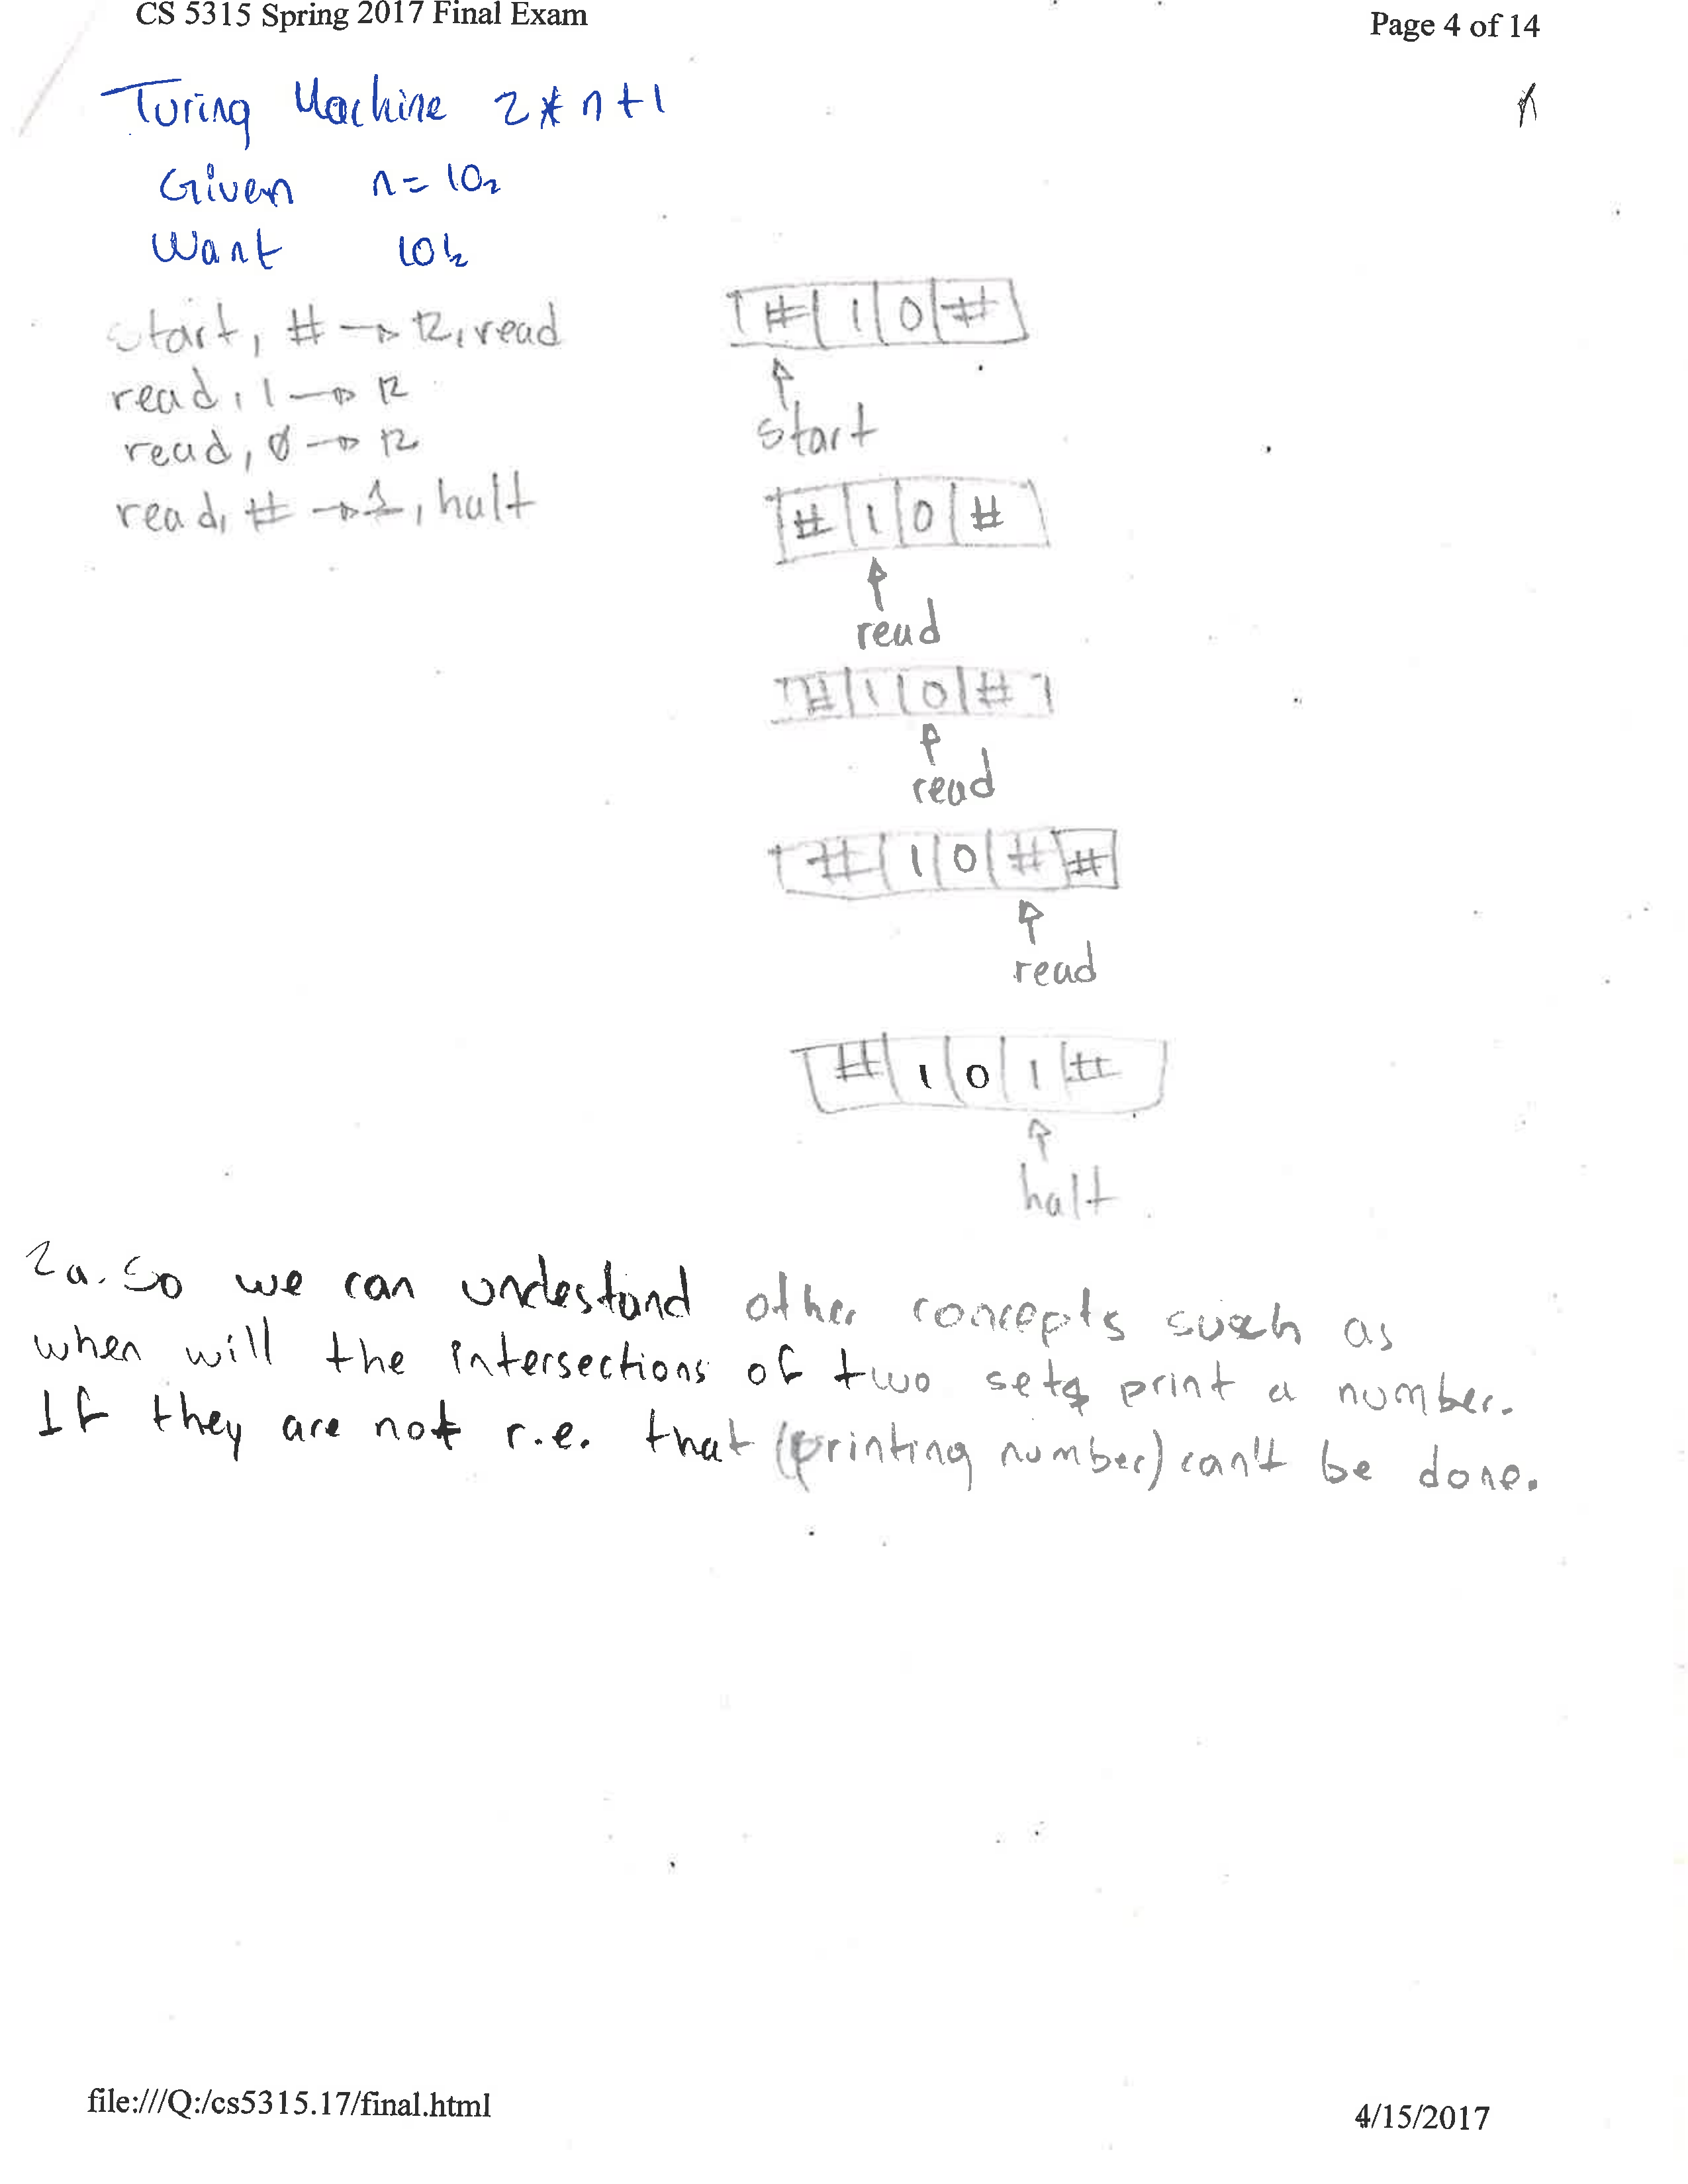 CS 5315 Spring 2017 Final Exam
Page 4 of 14
Turing Machine 2*n+1
Given n=10₂
Want 101₂
start, # → R, read
read, 1 → R
read, 0 → R
read, # → 1, halt
# | 1 | 0 | #
start
# | 1 | 0 | #
read
# | 1 | 0 | #
read
# | 1 | 0 | # | #
read
# | 1 | 0 | 1 | #
halt
2a. So we can undestand other concepts such as
when will the intersections of two sets print a number.
If they are not r.e. that (printing number) can't be done.
file:///Q:/cs5315.17/final.html
4/15/2017